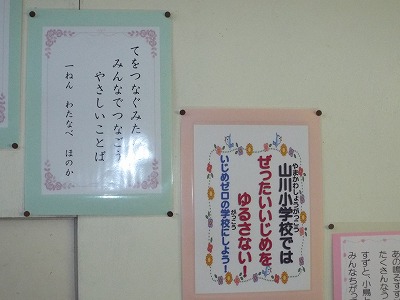 てをつなぐみた
みんなでつなごう
やさしいことば
一ねん わたなべ ほのか
山川小学校では
やまかわしょうがっこう
ぜったいいじめを
ゆるさない!
いじめゼロの学校にしよう!
がっこう
あの鳴るすず
たくさんなう
すずと、小鳥
みんなちがっ